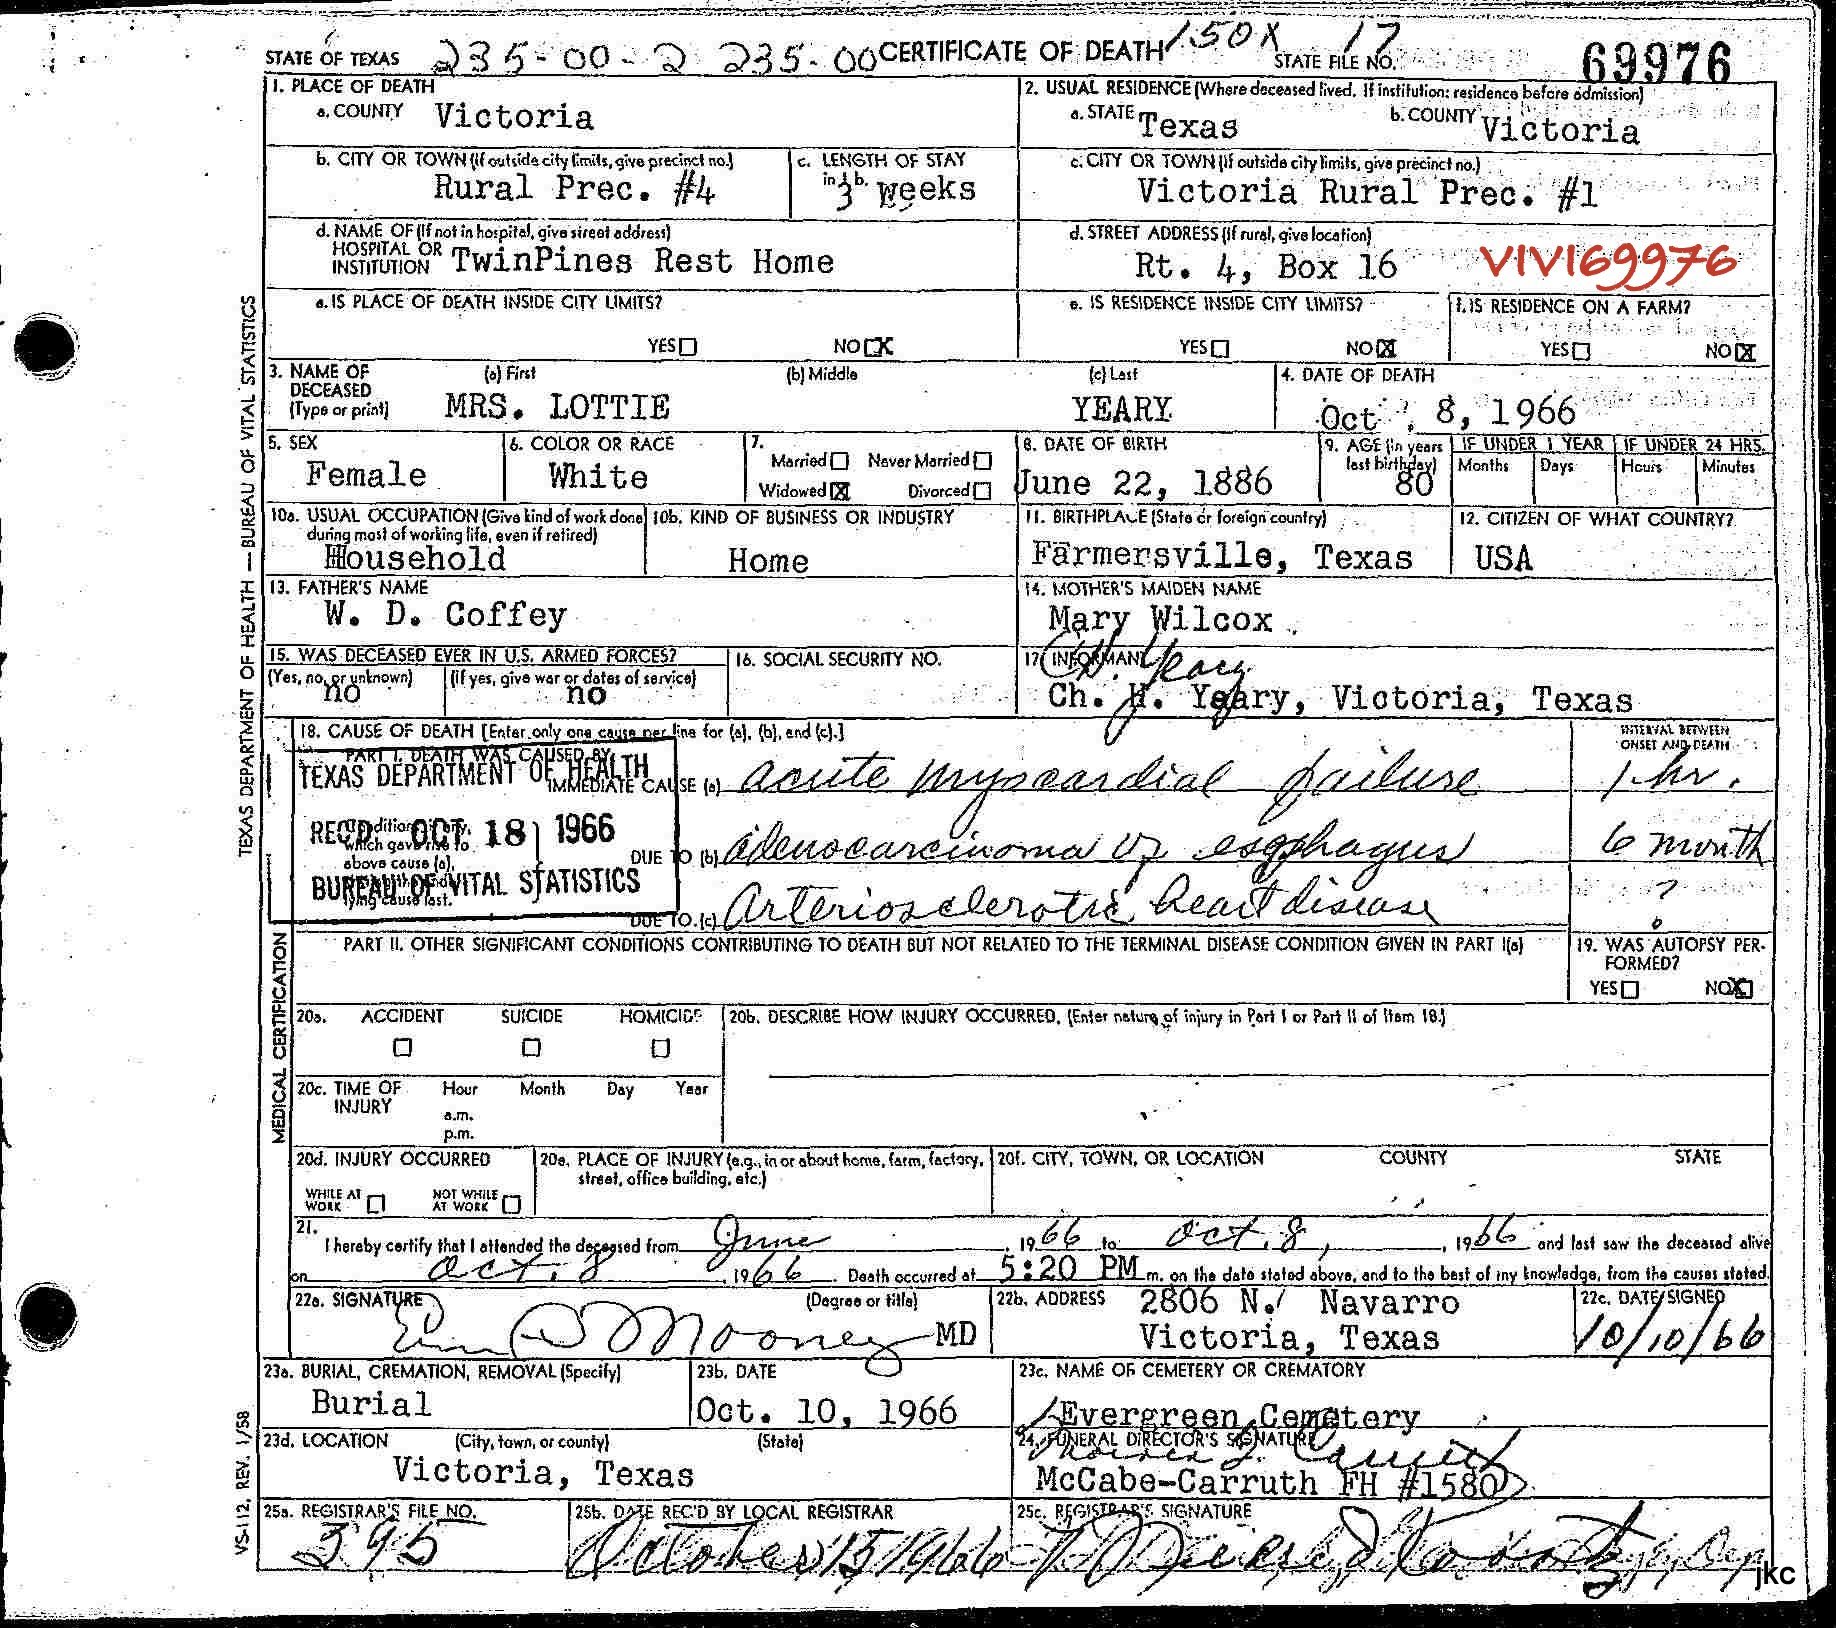 STATE OF TEXAS 235-00-2 235-00 CERTIFICATE OF DEATH 150X 17 STATE FILE NO. 69976
1. PLACE OF DEATH
a. COUNTY Victoria
2. USUAL RESIDENCE (Where deceased lived. If institution: residence before admission)
a. STATE Texas b. COUNTY Victoria
b. CITY OR TOWN (If outside city limits, give precinct no.)
Rural Prec. #4
c. LENGTH OF STAY
in 1b. 3 weeks
c. CITY OR TOWN (If outside city limits, give precinct no.)
Victoria Rural Prec. #1
d. NAME OF (If not in hospital, give street address)
HOSPITAL OR
INSTITUTION TwinPines Rest Home
d. STREET ADDRESS (If rural, give location)
Rt. 4, Box 16
VIVI69976
e. IS PLACE OF DEATH INSIDE CITY LIMITS?
YES NO X
e. IS RESIDENCE INSIDE CITY LIMITS?
YES NO X
f. IS RESIDENCE ON A FARM?
YES NO X
3. NAME OF DECEASED (Type or print)
(a) First (b) Middle (c) Last
MRS. LOTTIE YEARY
4. DATE OF DEATH
Oct. 8, 1966
5. SEX
Female
6. COLOR OR RACE
White
7.
Married Never Married
Widowed X Divorced
8. DATE OF BIRTH
June 22, 1886
9. AGE (In years last birthday)
80
IF UNDER 1 YEAR IF UNDER 24 HRS.
Months Days Hours Minutes
10a. USUAL OCCUPATION (Give kind of work done
during most of working life, even if retired)
Household
10b. KIND OF BUSINESS OR INDUSTRY
Home
11. BIRTHPLACE (State or foreign country)
Farmersville, Texas
12. CITIZEN OF WHAT COUNTRY?
USA
13. FATHER'S NAME
W. D. Coffey
14. MOTHER'S MAIDEN NAME
Mary Wilcox
15. WAS DECEASED EVER IN U.S. ARMED FORCES?
(Yes, no, or unknown) (If yes, give war or dates of service)
no no
16. SOCIAL SECURITY NO.
17. INFORMANT
C.H. Yeary
Ch. H. Yeary, Victoria, Texas
18. CAUSE OF DEATH [Enter only one cause per line for (a), (b), and (c).]
INTERVAL BETWEEN
ONSET AND DEATH
PART I. DEATH WAS CAUSED BY
IMMEDIATE CAUSE (a) acute myocardial failure 1 hr.
Conditions, if any,
which gave rise to
above cause (a),
lying cause last.
DUE TO (b) adenocarcinoma of esophagus 6 month
DUE TO (c) Arteriosclerotic heart disease ?
TEXAS DEPARTMENT OF HEALTH
REC'D. OCT 18 1966
BUREAU OF VITAL STATISTICS
PART II. OTHER SIGNIFICANT CONDITIONS CONTRIBUTING TO DEATH BUT NOT RELATED TO THE TERMINAL DISEASE CONDITION GIVEN IN PART I(a)
19. WAS AUTOPSY PER-
FORMED?
YES NO X
20a. ACCIDENT SUICIDE HOMICIDE
20b. DESCRIBE HOW INJURY OCCURRED. (Enter nature of injury in Part I or Part II of Item 18.)
20c. TIME OF INJURY
Hour Month Day Year
a.m.
p.m.
20d. INJURY OCCURRED
WHILE AT WORK NOT WHILE AT WORK
20e. PLACE OF INJURY (e.g., in or about home, farm, factory,
street, office building, etc.)
20f. CITY, TOWN, OR LOCATION COUNTY STATE
21.
I hereby certify that I attended the deceased from June, 1966 to Oct. 8, 1966 and last saw the deceased alive
on Oct. 8 1966. Death occurred at 5:20 PM m. on the date stated above, and to the best of my knowledge, from the causes stated.
22a. SIGNATURE (Degree or title)
Mooney MD
22b. ADDRESS 2806 N. Navarro
Victoria, Texas
22c. DATE SIGNED
10/10/66
23a. BURIAL, CREMATION, REMOVAL (Specify)
Burial
23b. DATE
Oct. 10, 1966
23c. NAME OF CEMETERY OR CREMATORY
Evergreen Cemetery
23d. LOCATION (City, town, or county) (State)
Victoria, Texas
24. FUNERAL DIRECTOR'S SIGNATURE
Carruth
McCabe-Carruth FH #1580
25a. REGISTRAR'S FILE NO.
395
25b. DATE REC'D BY LOCAL REGISTRAR
October 15 1966
25c. REGISTRAR'S SIGNATURE
jkc
TEXAS DEPARTMENT OF HEALTH — BUREAU OF VITAL STATISTICS
MEDICAL CERTIFICATION
VS-112, REV. 1/58